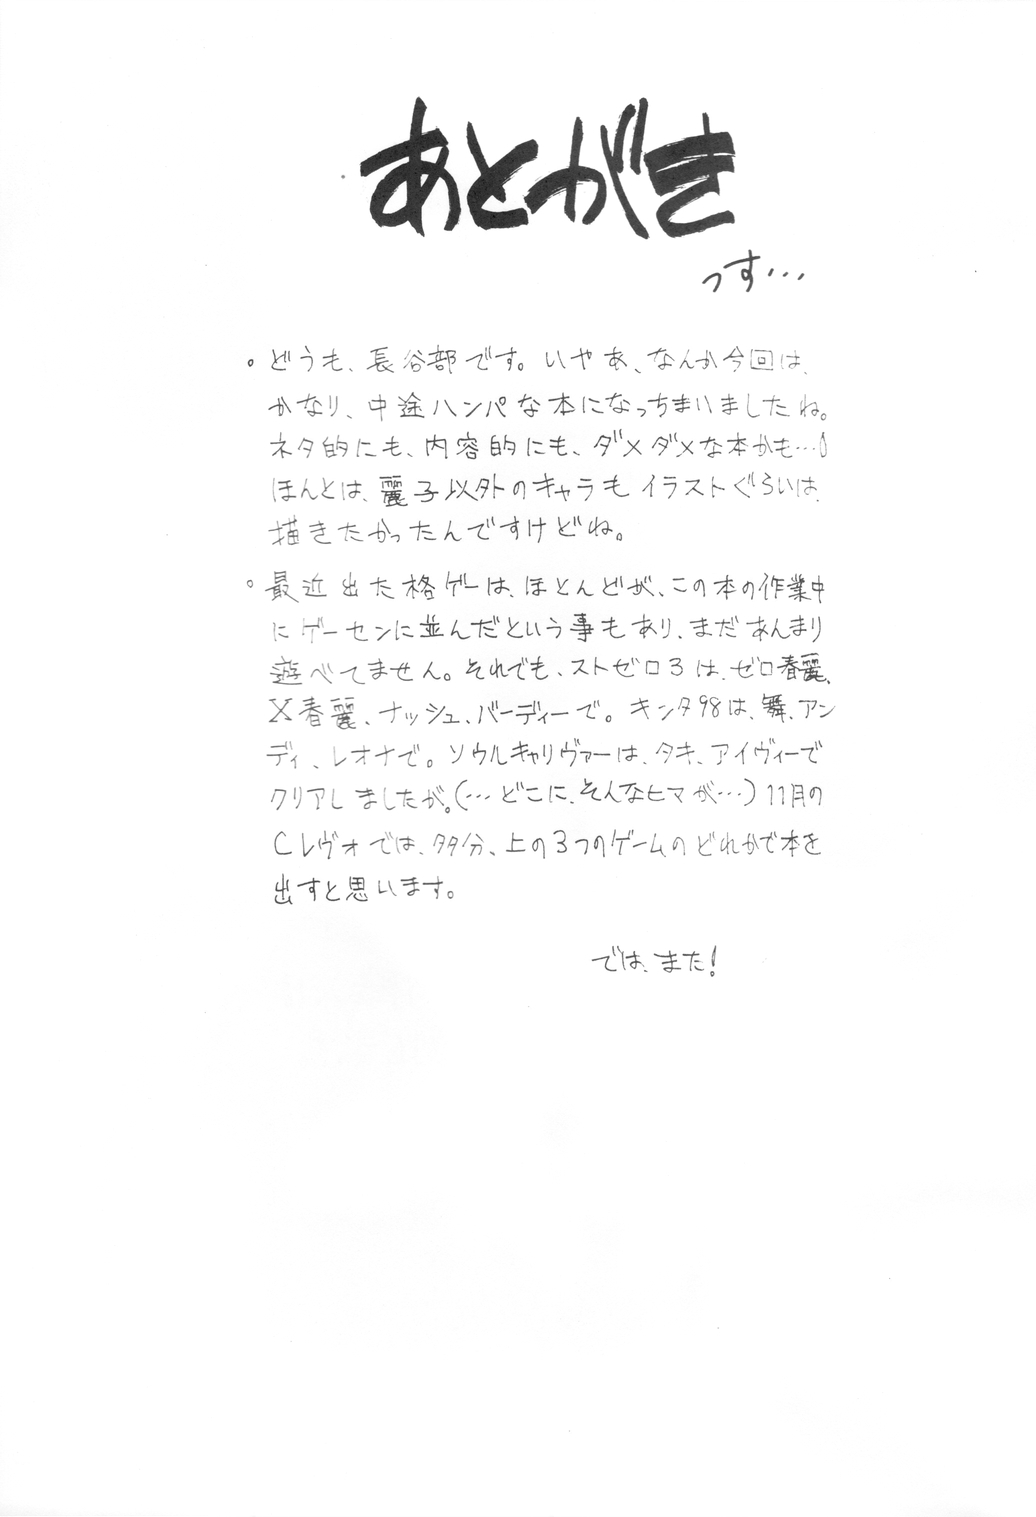 あとがき
っす…
。どうも、長谷部です。いやあ、なんか今回は、
かなり、中途ハンパな本になっちまいましたね。
ネタ的にも、内容的にも、ダメダメな本かも…!
ほんとは、麗子以外のキャラもイラストぐらいは、
描きたかったんですけどね。
。最近出た格ゲーは、ほとんどが、この本の作業中
にゲーセンに並んだという事もあり、まだあんまり
遊べてません。それでも、ストゼロ3は、ゼロ春麗、
X春麗、ナッシュ、バーディーで。キンタ98は、舞、アン
ディ、レオナで。ソウルキャリヴァーは、タキ、アイヴィーで
クリアしましたが。(…どこに、そんなヒマが…)11月の
Cレヴォでは、多分、上の3つのゲームのどれかで本を
出すと思います。
では、また!